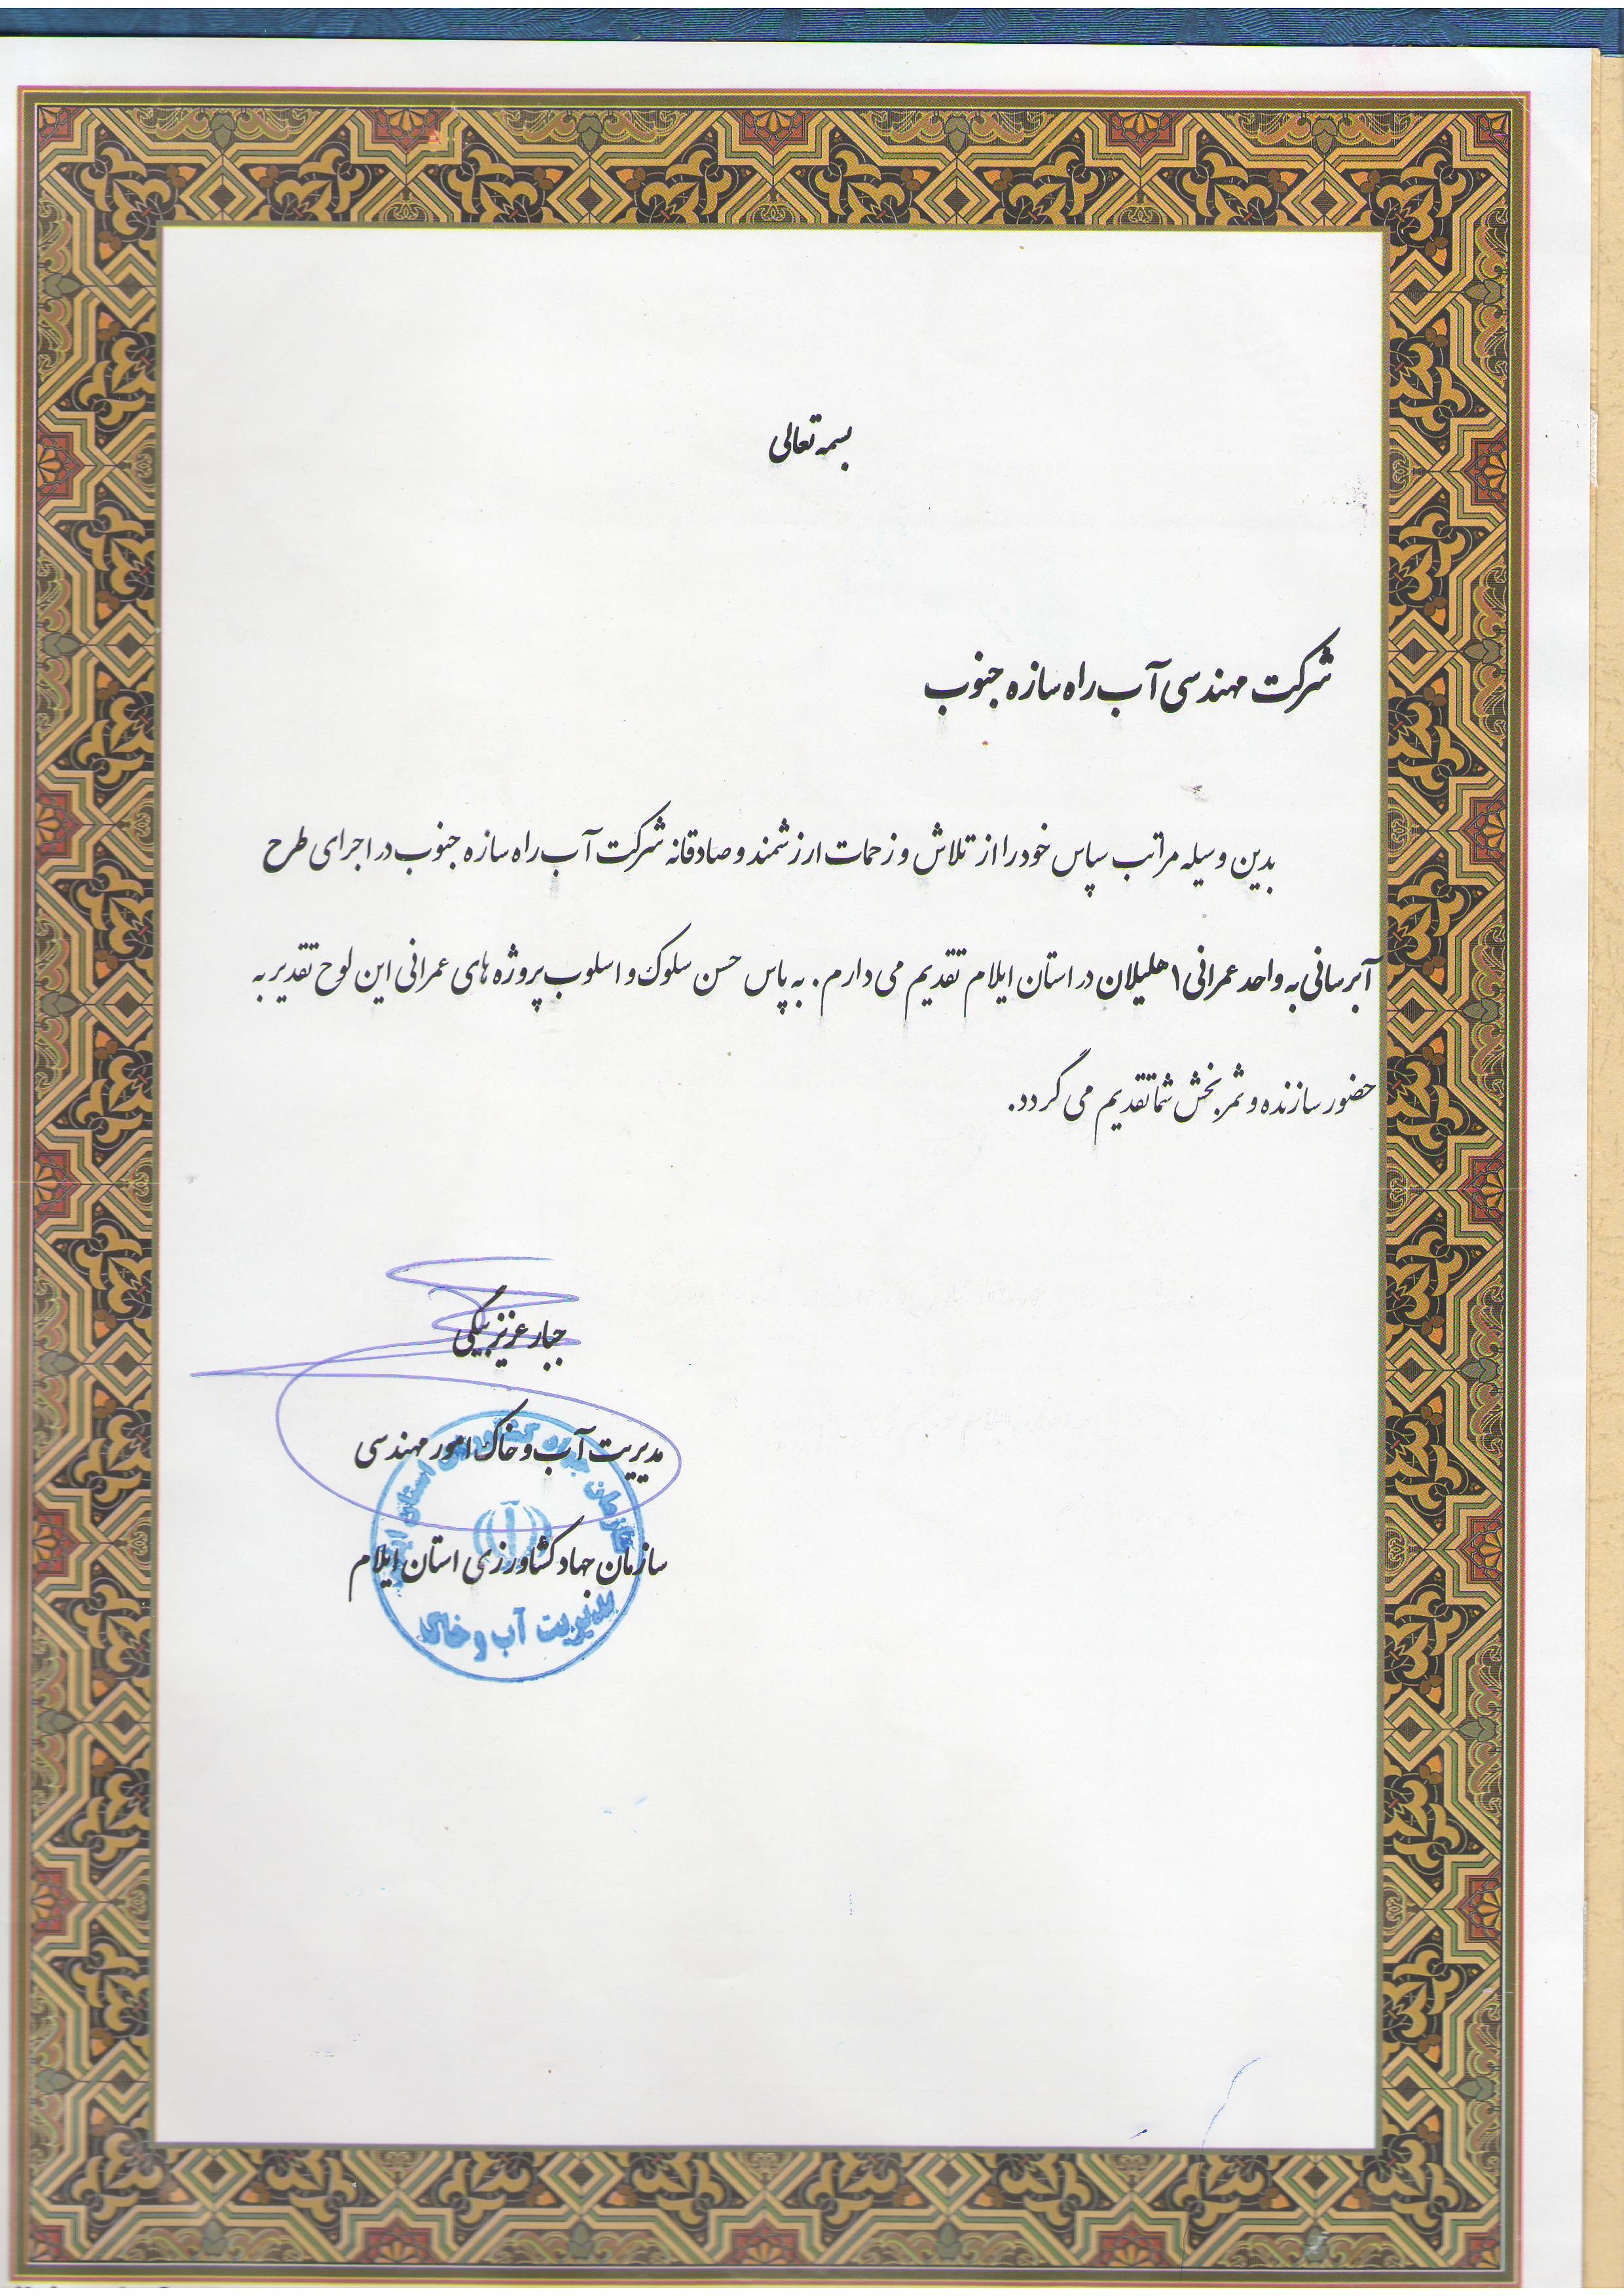 بسمه تعالی
شرکت مهندسی آب راه سازه جنوب
بدین وسیله مراتب سپاس خود را از تلاش و زحمات ارزشمند و صادقانه شرکت آب راه سازه جنوب در اجرای طرح
آبرسانی به واحد عمرانی ۱ هلیلان در استان ایلام تقدیم می دارم. به پاس حسن سلوک و اسلوب پروژه های عمرانی این لوح تقدیر به
حضور سازنده و ثمر بخش شما تقدیم می گردد.
جبار عزیزبیگی
مدیریت آب و خاک امور مهندسی
سازمان جهاد کشاورزی استان ایلام
مدیریت آب و خاک